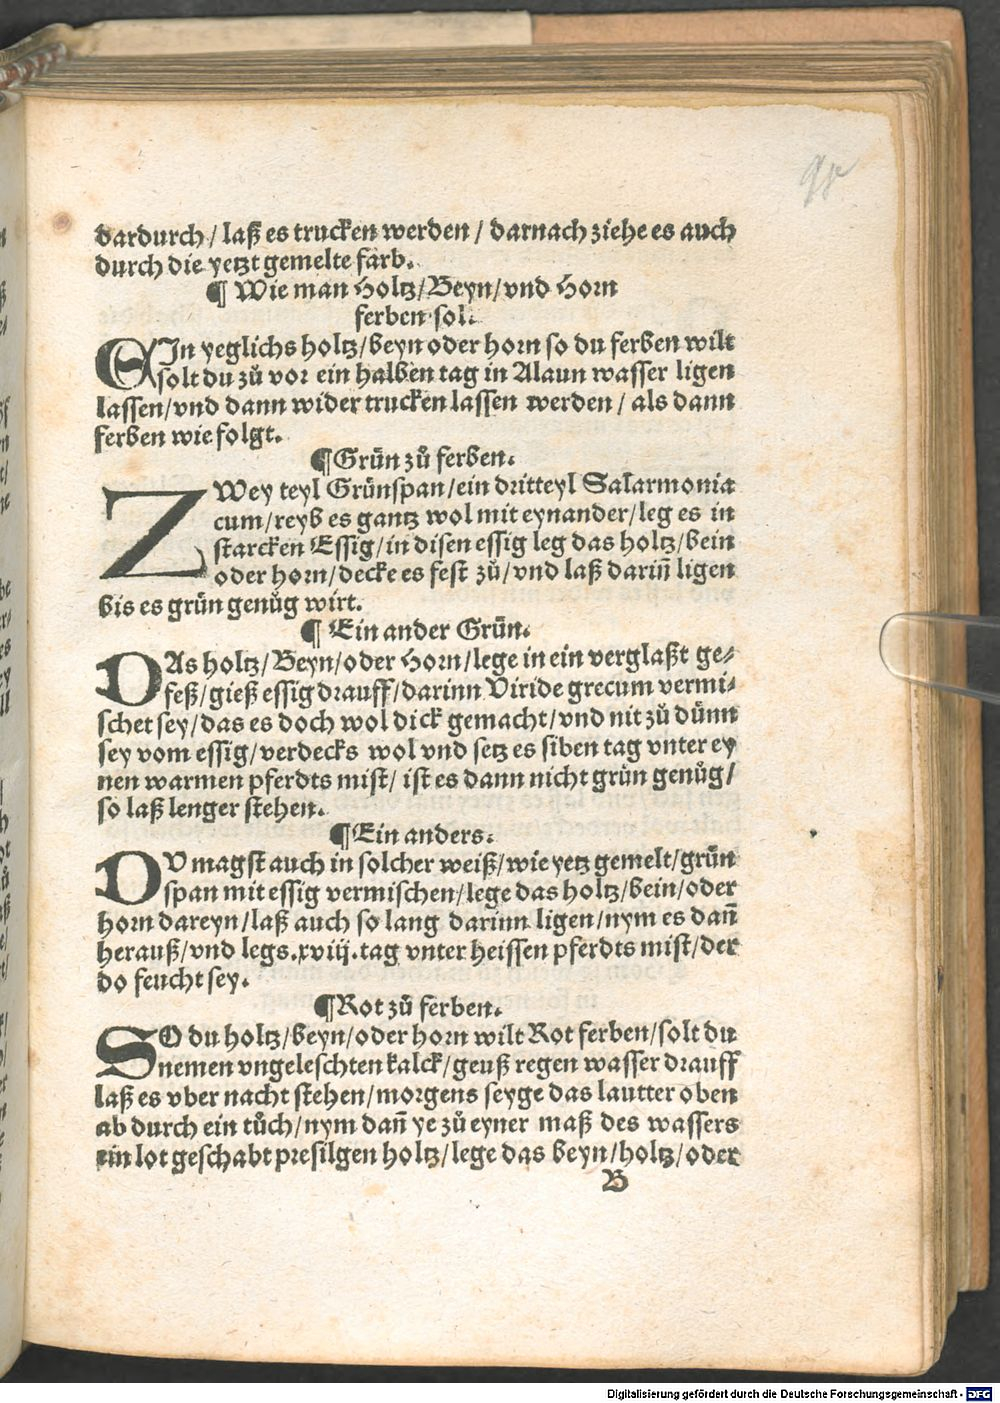 dardurch / laß es trucken werden / darnach ziehe es auch
durch die yetzt gemelte farb.
¶ Wie man Holtz/Beyn/vnd Horn
ferben sol.
EIn yeglichs holtz/beyn oder horn so du ferben wilt
solt du zů vor ein halben tag in Alaun wasser ligen
lassen/vnd dann wider trucken lassen werden / als dann
ferben wie folgt.
¶Grün zů ferben.
ZWey teyl Grünspan/ein dritteyl Salarmonia
cum/reyb es gantz wol mit eynander/leg es in
starcken Essig/in disen essig leg das holtz/bein
oder horn/decke es fest zů/vnd laß darin̄ ligen
bis es grün genůg wirt.
¶ Ein ander Grün.
DAs holtz/Beyn/oder Horn/lege in ein verglaßt ge⸗
feß/gieß essig drauff/darinn Viride grecum vermi⸗
schet sey/das es doch wol dick gemacht/vnd nit zů dünn
sey vom essig/verdecks wol vnd setz es siben tag vnter ey
nen warmen pferdts mist/ ist es dann nicht grün genůg/
so laß lenger stehen.
¶Ein anders.
DV magst auch in solcher weiß/wie yetz gemelt/grün
span mit essig vermischen/lege das holtz/bein/oder
horn dareyn/laß auch so lang darinn ligen/nym es dan̄
herauß/vnd legs.xviij.tag vnter heissen pferdts mist/der
do feucht sey.
¶Rot zů ferben.
SO du holtz/beyn/oder horn wilt Rot ferben/solt du
nemen vngeleschten kalck/geuß regen wasser drauff
laß es vber nacht stehen/morgens seyge das lautter oben
ab durch ein tůch/nym dan̄ ye zů eyner maß des wassers
ein lot geschabt presilgen holtz/lege das beyn/holtz/oder
B
Digitalisierung gefördert durch die Deutsche Forschungsgemeinschaft - DFG